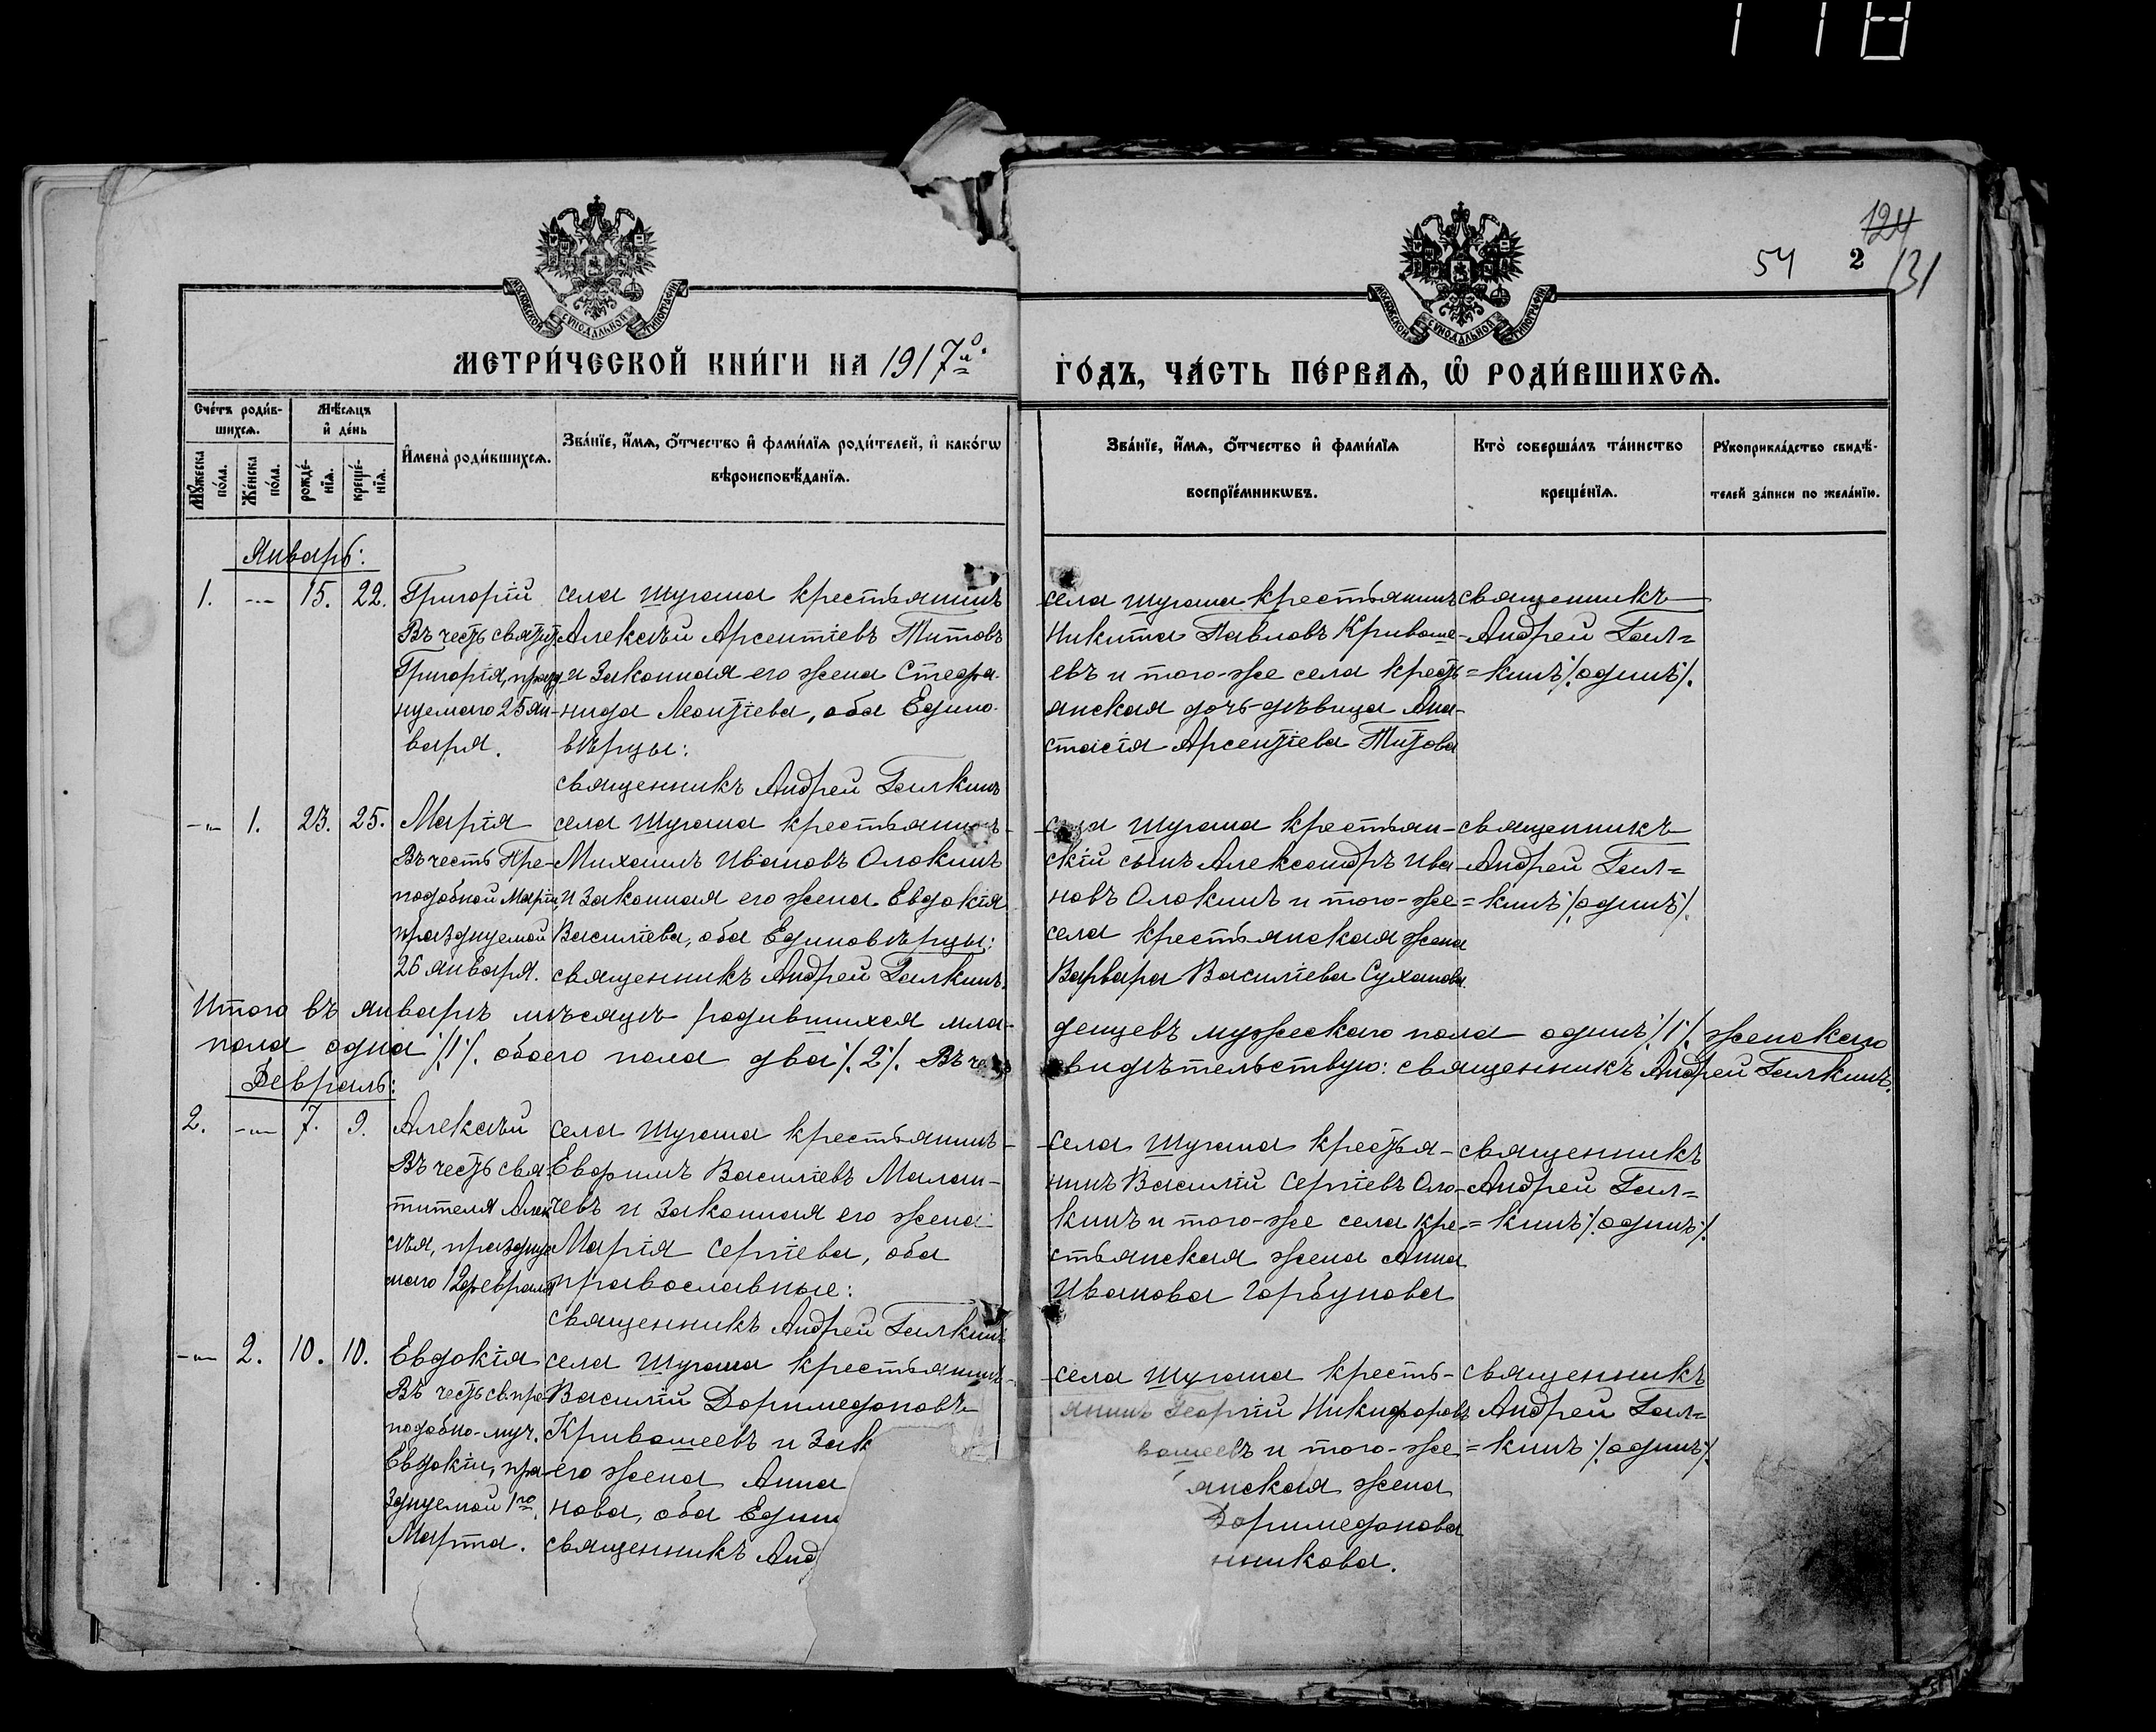 118
124
54 2 131
МОСКОВСКОЙ СѴНОДАЛЬНОЙ ТИПОГРАФІИ
МОСКОВСКОЙ СѴНОДАЛЬНОЙ ТИПОГРАФІИ
МЕТРИ́ЧЕСКОЙ КНИ́ГИ НА 1917й
ГО́ДЪ, ЧА́СТЬ ПЕ́РВАѦ, Ѽ РОДИ́ВШИХСѦ.
Сче́тъ роди́в-
шихсѧ.
Мѣ́сѧцъ
и҆ де́нь
Мꙋ́жеска по́ла.
Же́нска по́ла.
рожде́-нїѧ.
креще́-нїѧ.
И҆мена̀ роди́вшихсѧ.
Зва́нїе, и҆́мѧ, ѻ҆́тчество и҆ фами́лїѧ роди́телей, и҆ како́гѡ
вѣроисповѣ́данїѧ.
Зва́нїе, и҆́мѧ, ѻ҆́тчество и҆ фами́лїѧ
воспрїе́мникѡвъ.
Кто̀ соверша́лъ та́инство
креще́нїѧ.
Рꙋкоприкла́дство свидѣ́-
телей за́писи по жела́нїю.
Январь:
1. -"- 15. 22.
Григорій
Въ честь святит.
Григорія, празд-
нуемаго 25 ян-
варя.
села Шугаша крестьянинъ
Алексѣй Арсентіевъ Титовъ
и законная его жена Стефа-
нида Леонтіева, оба Едино-
вѣрцы:
священникъ Андрей Галкинъ
села Шугаша крестьянинъ
Никита Павловъ Кривоше-
евъ и того-же села кресть-
янская дочь-дѣвица Ана-
стасія Арсентіева Титова
священникъ
Андрей Гал=
=кинъ ·/. одинъ ·/.
-"- 1. 23. 25.
Марія
Въ честь Пре-
подобной Маріи,
празднуемой
26 января.
села Шугаша крестьянинъ-
Михаилъ Ивановъ Олокинъ
и законная его жена Евдокія
Василіева, оба Единовѣрцы:
священникъ Андрей Галкинъ.
села Шугаша крестьян-
скій сынъ Александръ Ива-
новъ Олокинъ и того-же
села крестьянская жена
Варвара Василіева Суханова
священникъ
Андрей Гал=
=кинъ ·/. одинъ ·/.
Итого въ январѣ мѣсяцѣ родившихся мла-
денцевъ мужескаго пола одинъ ·/. 1 ·/. женскаго
пола одна ·/. 1 ·/. обоего пола два ·/. 2 ·/. Въ че
видѣтельствую: священникъ Андрей Галкинъ.
Февраль:
2. -"- 7. 9.
Алексѣй
Въ честь свя-
тителя Алек-
сѣя, празднуе-
маго 12 февраля
села Шугаша крестьянинъ-
Евфимъ Василіевъ Малан-
чевъ и законная его жена
Марія Сергіева, оба
православные:
священникъ Андрей Галкинъ
села Шугаша крестья-
нинъ Василій Сергіевъ Оло-
кинъ и того-же села кре-
стьянская жена Анна
Иванова Горбунова
священникъ
Андрей Гал=
=кинъ ·/. одинъ ·/.
-"- 2. 10. 10.
Евдокія
Въ честь св. пре-
подобно-муч.
Евдокіи, пра-
зднуемой 1го
Марта.
села Шугаша крестьянинъ-
Василій Доримедоновъ
Кривошеевъ и Зак
его жена Анна
нова, оба Един
священникъ Анд
села Шугаша кресть-
янинъ Георгій Никифоровъ
вошеевъ и того-же
янская жена
Доримедонова
нникова.
священникъ
Андрей Гал=
=кинъ ·/. одинъ ·/.